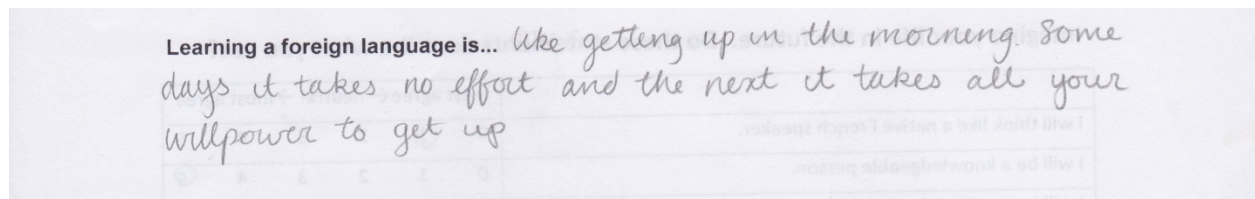 Learning a foreign language is... like getting up in the morning. Some
days it takes no effort and the next it takes all your
willpower to get up